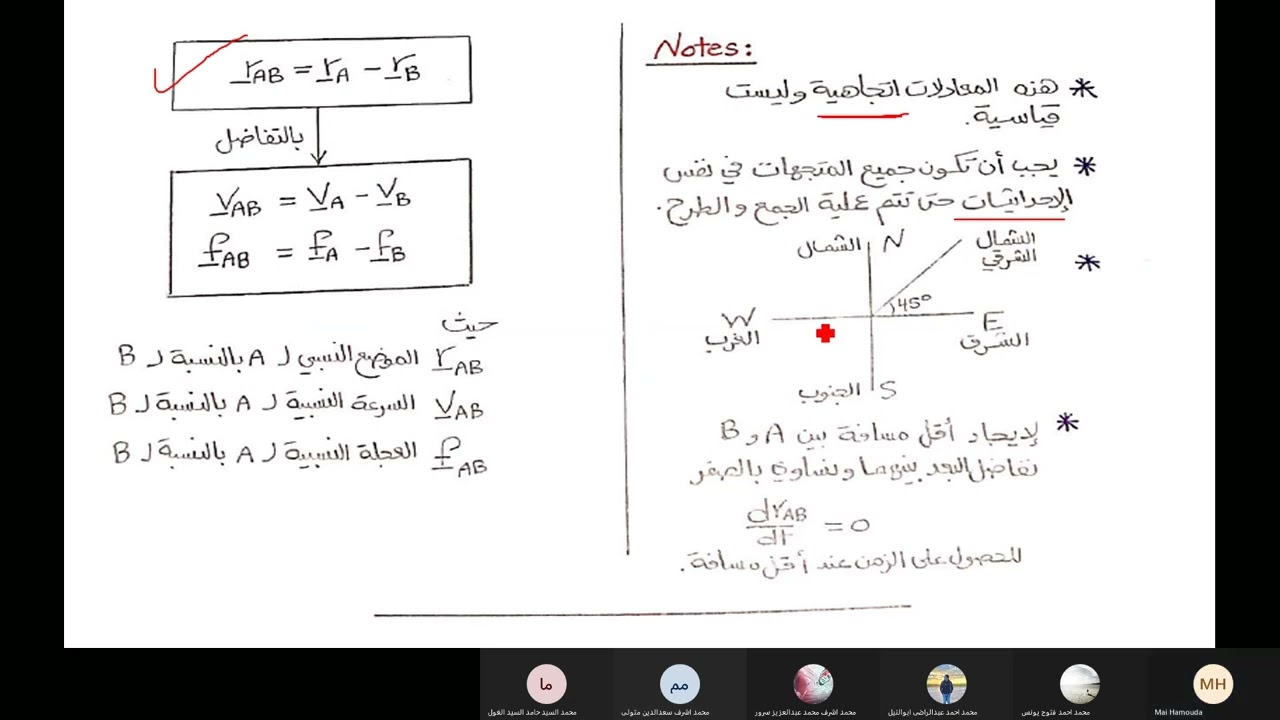 r_AB = r_A - r_B
بالتفاضل
V_AB = V_A - V_B
f_AB = f_A - f_B
حيث
r_AB الموضع النسبي لـ A بالنسبة لـ B
V_AB السرعة النسبية لـ A بالنسبة لـ B
f_AB العجلة النسبية لـ A بالنسبة لـ B
Notes:
* هذه المعادلات اتجاهية وليست
قياسية.
* يجب أن تكون جميع المتجهات في نفس
الإحداثيات حتى تتم عملية الجمع والطرح.
*
الشمال N
الشمال
الشرقي
45°
W
الغرب
E
الشرق
الجنوب S
* لإيجاد أقل مسافة بين A و B
نفاضل البعد بينهما ونساوي بالصفر
dr_AB/dt = 0
للحصول على الزمن عند أقل مسافة.
ما
مم
MH
محمد السيد حامد السيد الغول
محمد اشرف سعدالدين متولى
محمد اشرف محمد عبدالعزيز سرور
محمد احمد عبدالراضى ابوالليل
محمد احمد فتوح يونس
Mai Hamouda